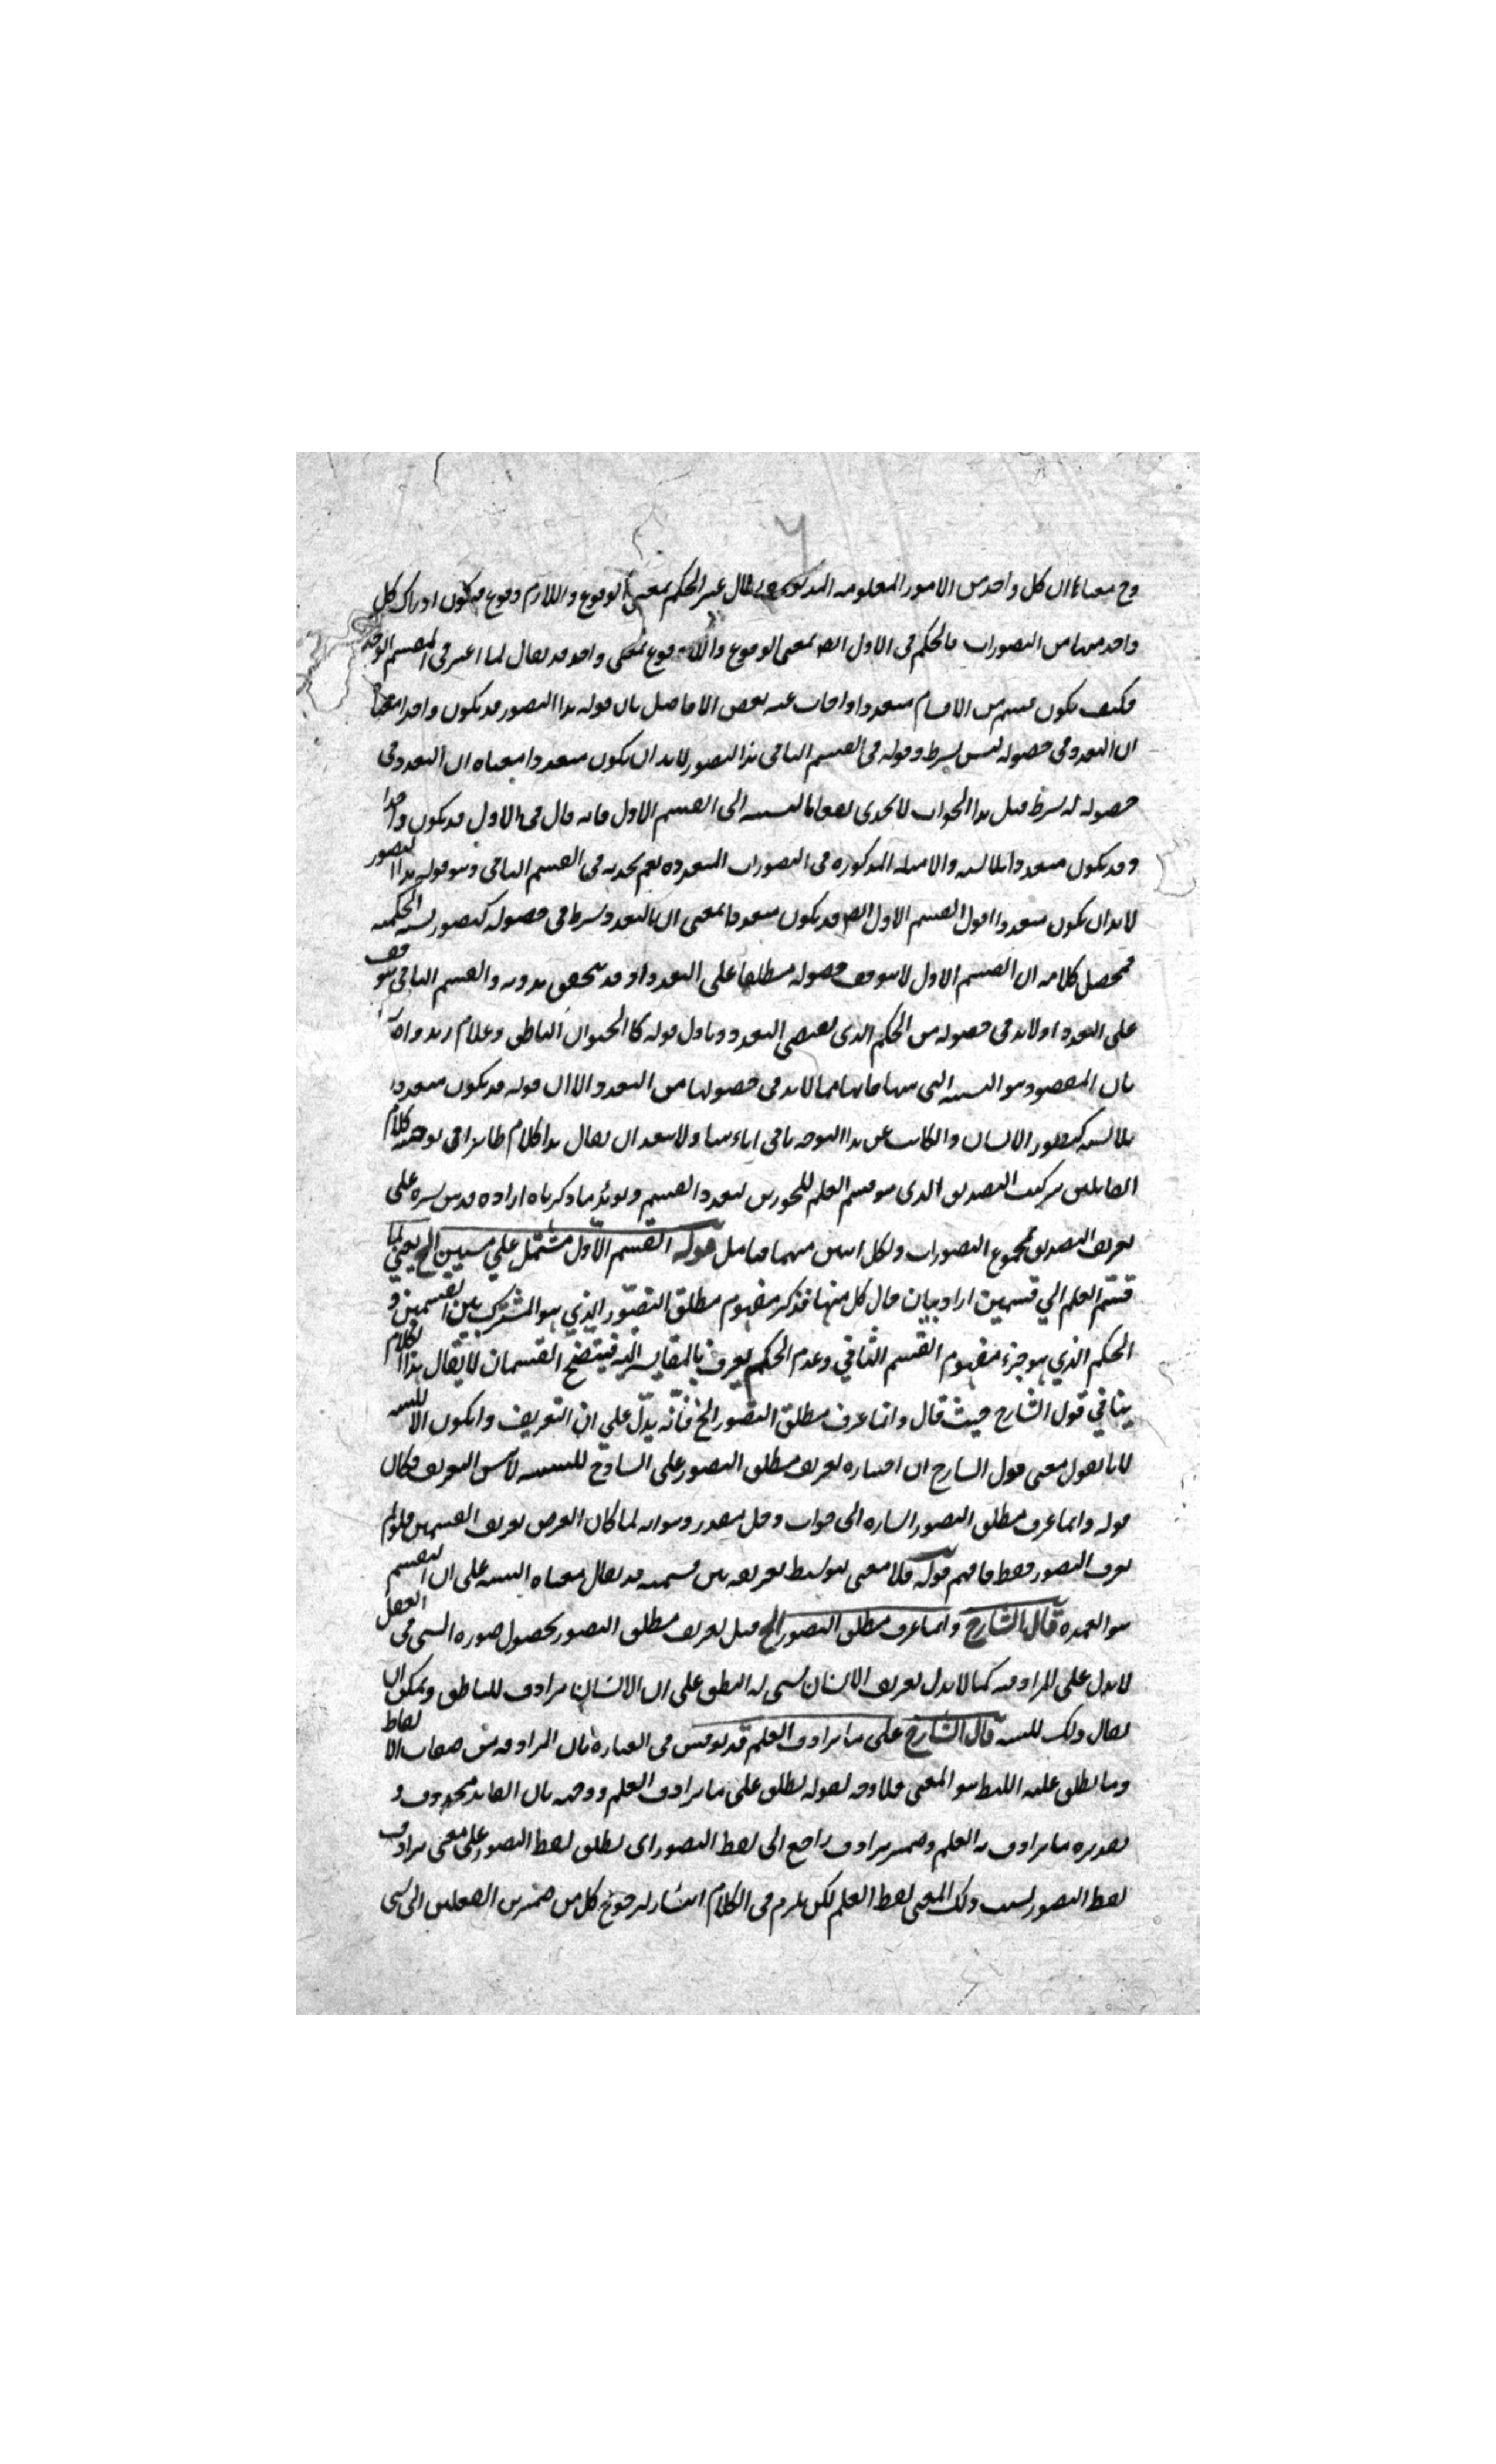 وح معناه ان كل واحد من الامور المعلومة المذكورة يقال غير الحكم بمعنى الوقوع واللازم وقوع فيكون ادراك كل
واحد منها من التصورات فالحكم في الاول ايضا بمعنى الوقوع واللا وقوع بمعنى واحد قد يقال لما اعتبر في القسم الوحدة
فكيف يكون قسم من الاقسام متعددا واجاب عنه بعض الافاضل بان قوله هذا التصور قد يكون واحدا معناه
ان التعدد في حصوله ليس بشرط وقوله في القسم الثاني هذا التصور لابد ان يكون متعددا معناه ان التعدد في
حصوله له شرط قيل هذا الجواب لا يجدي نفعا بالنسبة الى القسم الاول فانه قال في الاول قد يكون واحدا
وقد يكون متعددا بلا نسبة والامثلة المذكورة في التصورات المتعددة نعم يجديه في القسم الثاني وهو قوله هذا التصور
لابد ان يكون متعددا اقول القسم الاول ايضا قد يكون متعددا بمعنى ان التعدد شرط في حصوله كتصور نسبة الحكمية
فمحصل كلامه ان القسم الاول لا يتوقف حصوله مطلقا على التعدد اذ قد يتحقق بدونه والقسم الثاني يتوقف
على التعدد اذ لابد في حصوله من الحكم الذي يقتضي التعدد وتاول قوله كالحيوان الناطق وغلام زيد
بان المقصود هو النسبة التي فيها فانها مما لابد في حصولها من التعدد والا ان قوله قد يكون متعددا
بلا نسبة كتصور الانسان والكاتب عن هذا التوجه باقي اباء ولا يبعد ان يقال هذا كلام ظاهري في توجيه كلام
القائلين بتركيب التصديق الذي هو قسم العلم للمجوزين لتعدد القسم ويؤيد ما ذكرناه اراده قدس سره على
تعريف التصديق بمجموع التصورات ولكل اثنين منهما فتامل قوله القسم الاول مشتمل على قسمين الخ يعني لما
قسّم العلم الي قسمين اراد بيان حال كل منها فذكر مفهوم مطلق التصوّر الذي هو المشترك بين القسمين و
الحكم الذي هو جزء مفهوم القسم الثاني وعدم الحكم يعرف بالمقايسة اليه فيتضح القسمان لا يقال هذا الكلام
ينافي قول الشارح حيث قال وانما عرف مطلق التصور الخ فانّه يدلّ علي ان التعريف وايكون الا للنسبة
لانا نقول معنى قول الشارح ان اختياره تعريف مطلق التصور على الساذج للتنبيه لا نفس التعريف فكان
قوله وانما عرف مطلق التصور اشارة الى جواب دخل مقدر وهو انه لما كان الغرض تعريف القسمين فلو لم
يعرف التصور فقط فافهم قوله فلا معنى لتوسيط تعريفه بين قسميه قد يقال معناه التنبيه على ان التقسيم
هو العمدة قال الشارح وانما عرف مطلق التصور الخ قيل تعريف مطلق التصور بحصول صورة الشيء في العقل
لا يدل على المرادفة كما لا يدل تعريف الانسان بشيء له النطق على ان الانسان مرادف للناطق ويمكن ان
يقال ذلك للتنبيه قال الشارح على ما يرادف العلم قد يوقش في العبارة بان المرادفة من صفات الالفاظ
وما يطلق عليه اللفظ هو المعنى فلا وجه لقوله يطلق على ما يرادف العلم ووجه بان العائد محذوف و
تقديره ما يرادف به العلم وضمير يرادف راجع الى لفظ التصور اى يطلق لفظ التصور على معنى يرادف
لفظ التصور بسبب ذلك المعنى لفظ العلم لكن يلزم في الكلام انتشار لرجوع كل من ضميرين الفعلين الى شيء